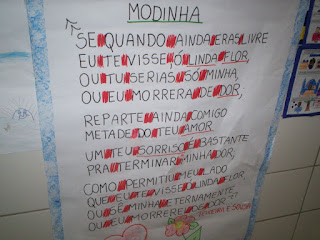 MODINHA
"SE QUANDO AINDA ERAS LIVRE
EU TE VISSE, Ó LINDA FLOR,
OU TU SERIAS SÓ MINHA,
OU EU MORRERA DE DOR,
REPARTE AINDA COMIGO
METADE DO TEU AMOR
UM TEU SORRISO É BASTANTE
PRA TERMINAR MINHA DOR,
COMO PERMITIU MEU LADO
QUE EU TE VISSE, Ó LINDA FLOR,
OU SÊ MINHA ETERNAMENTE,
OU EU MORREREI DE DOR."
E SOUSA